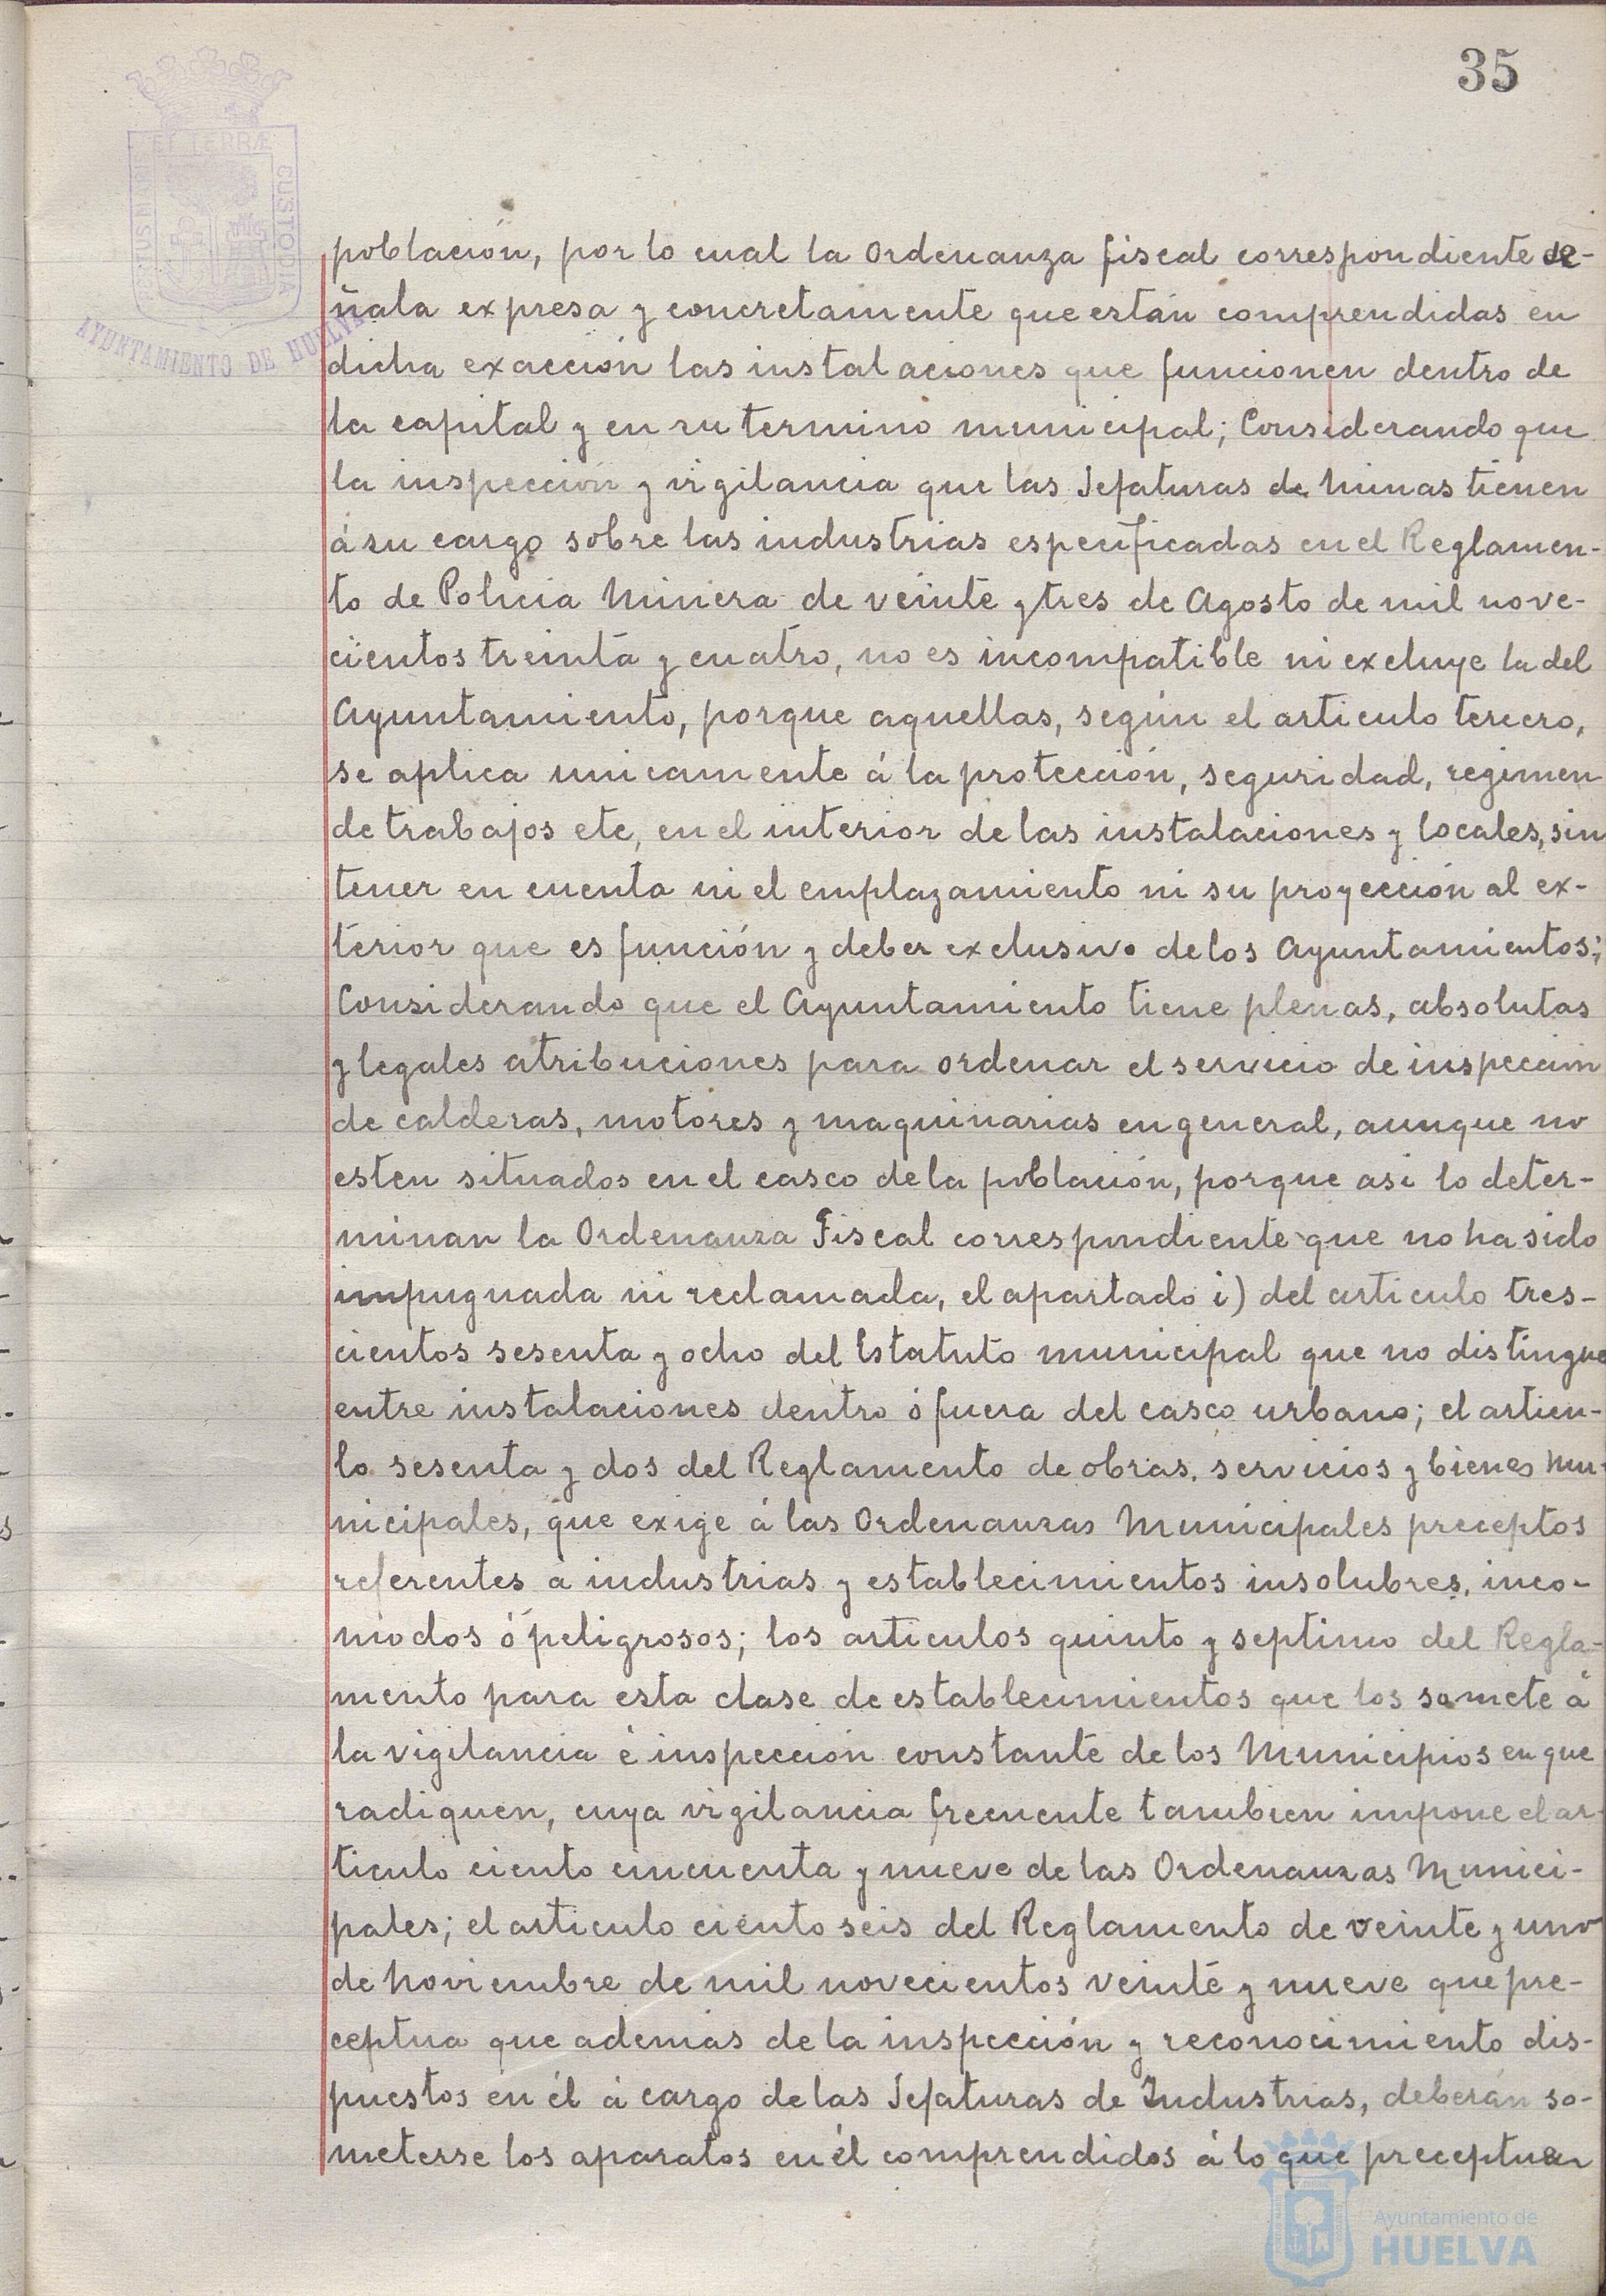 35
PORTUS MARIS
ET TERRÆ
CUSTODIA
AYUNTAMIENTO DE HUELVA
población, por lo cual la Ordenanza fiscal correspondiente se-
ñala expresa y concretamente que están comprendidas en
dicha exacción las instalaciones que funcionen dentro de
la capital y en su termino municipal; Considerando que
la inspección y vigilancia que las Jefaturas de Minas tienen
á su cargo sobre las industrias especificadas en el Reglamen-
to de Policia Minera de veinte y tres de Agosto de mil nove-
cientos treinta y cuatro, no es incompatible ni excluye la del
Ayuntamiento, porque aquellas, según el articulo tercero,
se aplica unicamente á la protección, seguridad, regimen
de trabajos etc, en el interior de las instalaciones y locales, sin
tener en cuenta ni el emplazamiento ni su proyección al ex-
terior que es función y deber exclusivo de los Ayuntamientos;
Considerando que el Ayuntamiento tiene plenas, absolutas
y legales atribuciones para ordenar el servicio de inspección
de calderas, motores y maquinarias en general, aunque no
esten situados en el casco de la población, porque asi lo deter-
minan la Ordenanza Fiscal correspondiente que no ha sido
impugnada ni reclamada, el apartado i) del articulo tres-
cientos sesenta y ocho del Estatuto municipal que no distingue
entre instalaciones dentro ó fuera del casco urbano; el articu-
lo sesenta y dos del Reglamento de obras, servicios y bienes Mu-
nicipales, que exige á las Ordenanzas Municipales preceptos
referentes a industrias y establecimientos insolubres, inco-
modos ó peligrosos; los articulos quinto y septimo del Regla-
mento para esta clase de establecimientos que los somete á
la vigilancia é inspección constante de los Municipios en que
radiquen, cuya vigilancia frecuente tambien impone el ar-
ticulo ciento cincuenta y nueve de las Ordenanzas Munici-
pales; el articulo ciento seis del Reglamento de veinte y uno
de Noviembre de mil novecientos veinte y nueve que pre-
ceptua que ademas de la inspección y reconocimiento dis-
puestos en él á cargo de las Jefaturas de Industrias, deberán so-
meterse los aparatos en él comprendidos á lo que preceptuan
Ayuntamiento de
HUELVA